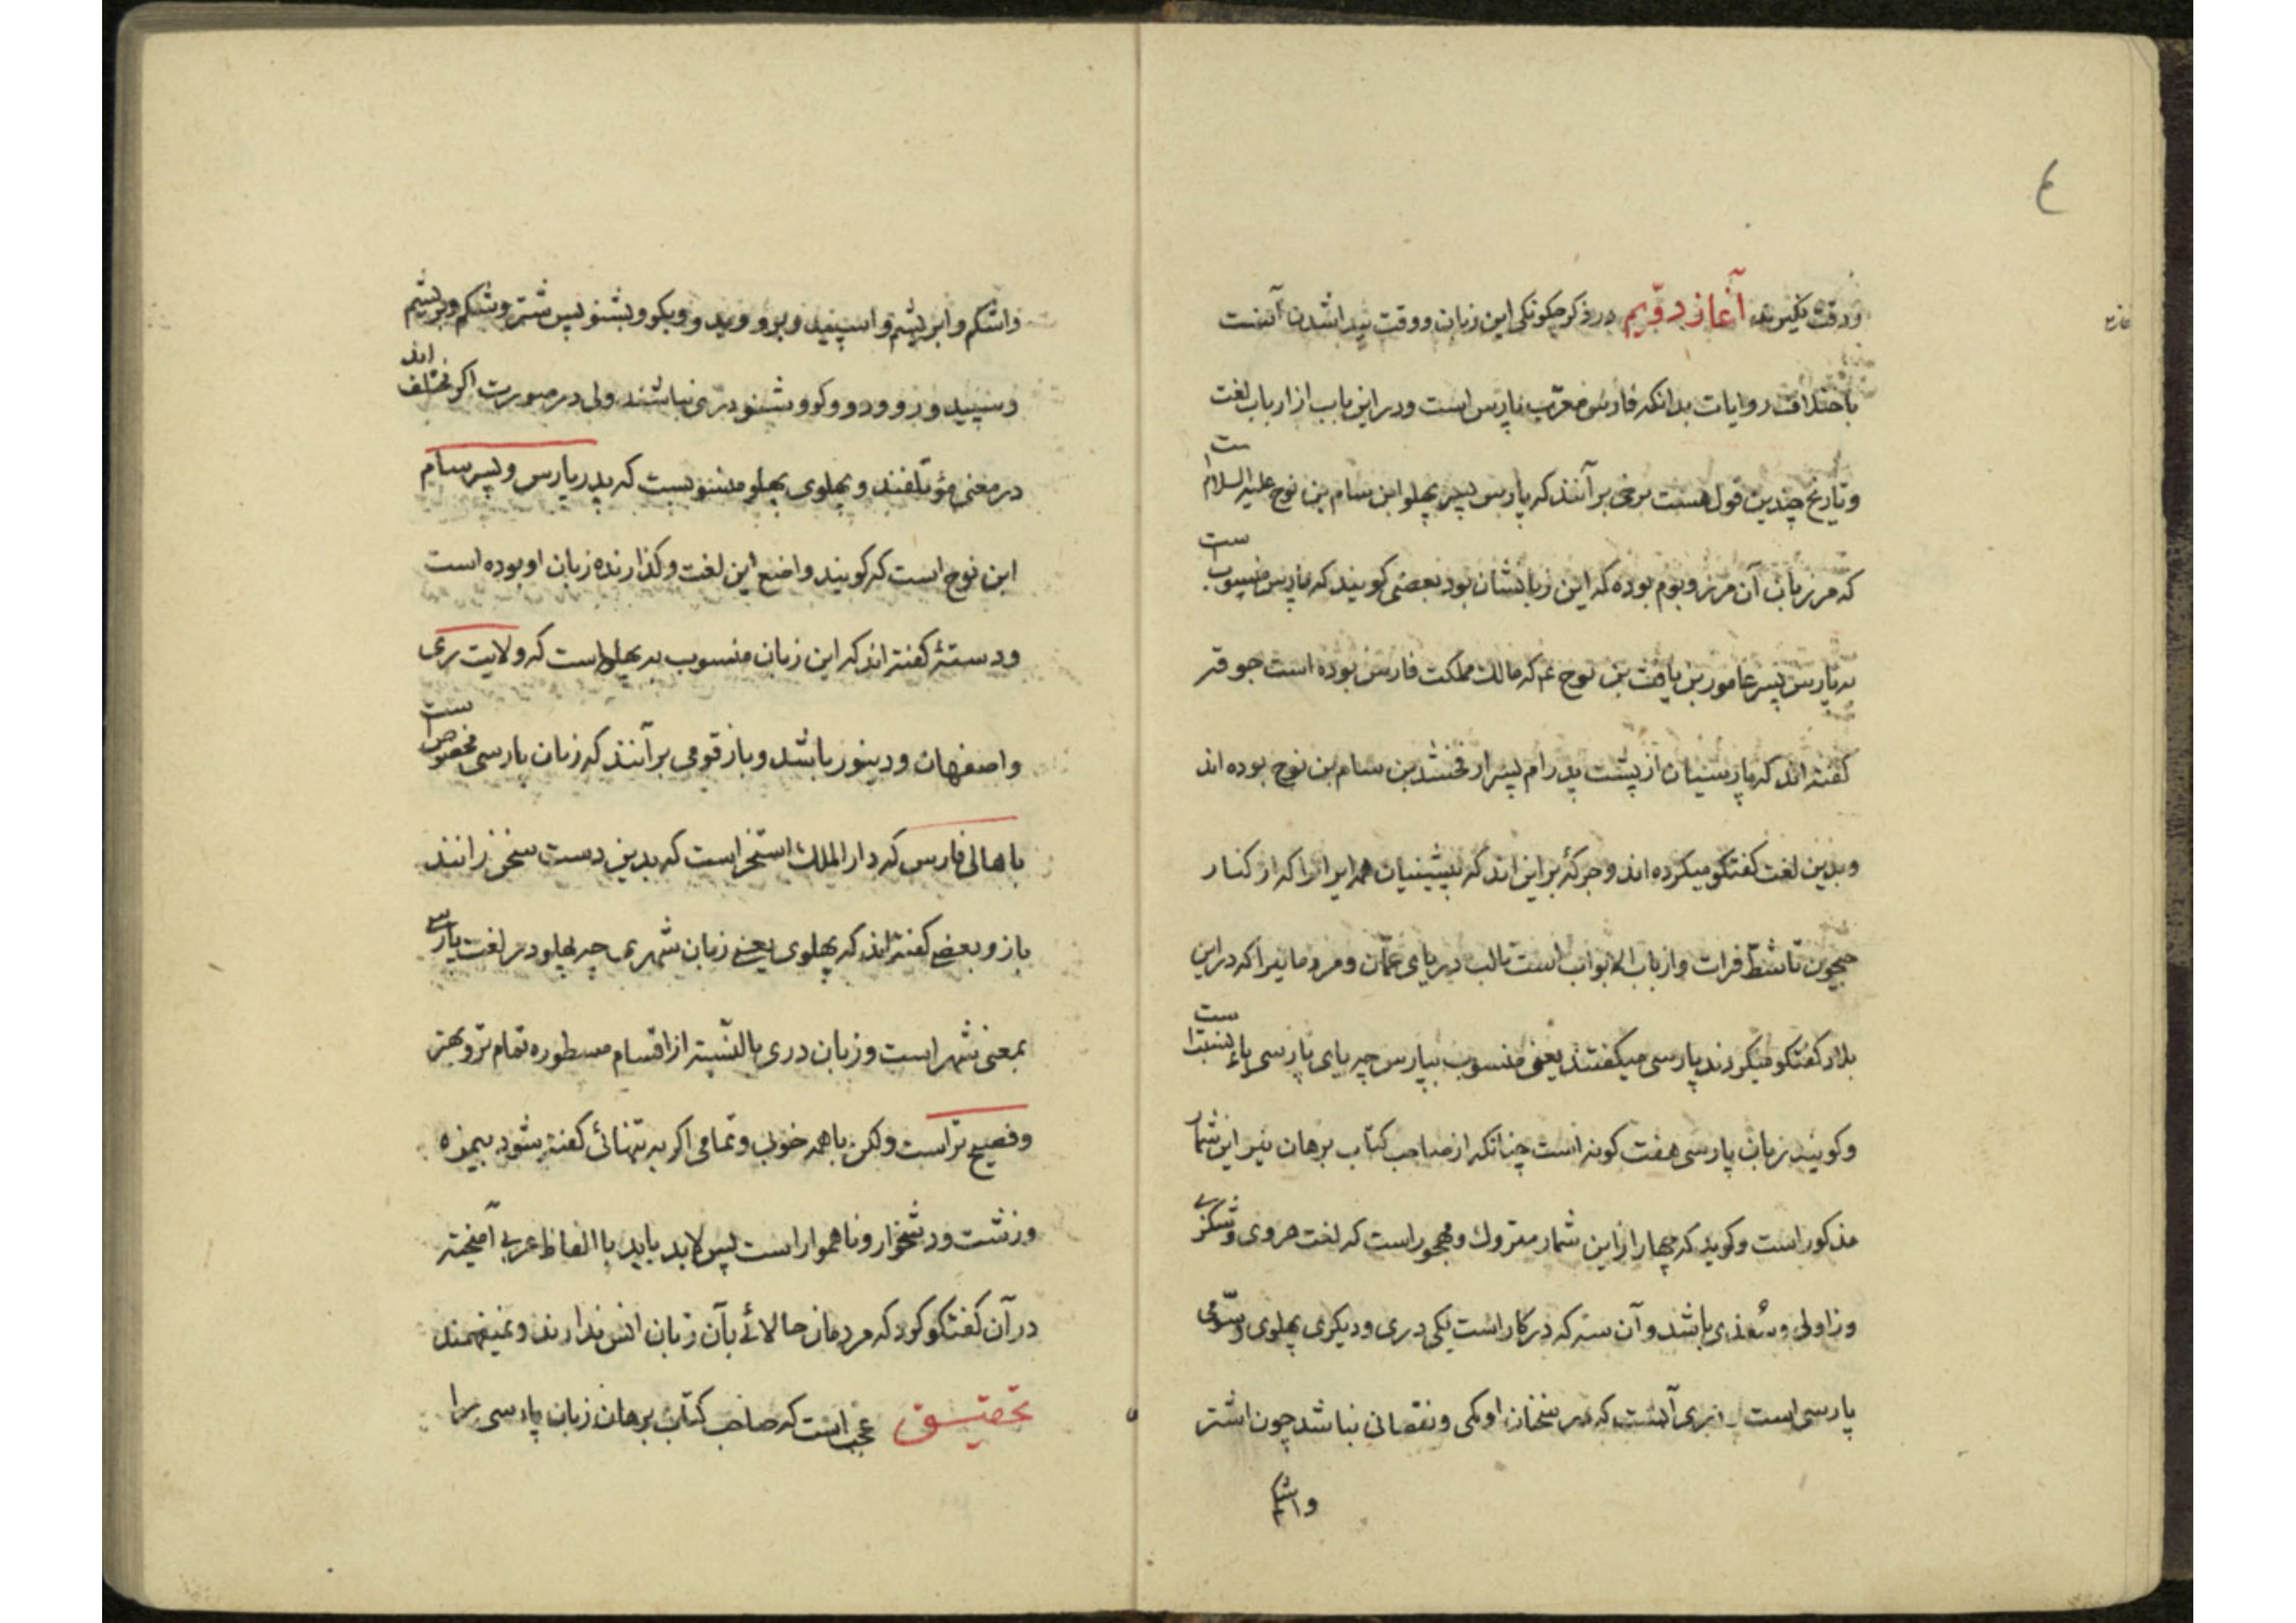 ٤
ودقت نگیرند آغاز دویم در ذکر چکونکی این زبان ووقت پیدا شدن آنست
باختلاف روایات بدانکه فارس معرّب پارس است ودر این باب از ارباب لغت
وتاریخ چندین قول هست برخی بر آنند که پارس پسر پهلو ابن سام بن نوح علیه السلام است
که مرزبان آن مرز وبوم بوده که این زبانشان بود بعضی کویند که فارس منسوب است
به پارس پسر عامور بن یافث بن نوح ع‌م که مالك مملکت فارس بوده است جوقتر
کفته اند که پارسیان از پشت پدرام پسر ارفخشد بن سام بن نوح بوده اند
وبدین لغت کفتکو میکرده اند وجرکهٔ بر این اند که پیشینیان همه ایران را که از کنار
جیحون تا شطّ فرات واز باب الابواب است تا لب دریای عمّان ومردمانیرا که در این
بلاد کفتکو میکردند پارسی میکفتند یعنی منسوب بپارس چه یای پارسی یاء نسبت است
وکویند زبان پارسی هفت کونه است چنانکه از صاحب کتاب برهان نیز این شمار
مذکور است وکوید که چهار از این شمار متروك ومهجور است که لغت هروی وشکزی
وزاولی وسُغدی باشد وآن سه که در کار است یکی دری ودیکری پهلوی وسّومی
پارسی است دری آنست که در سخنان او کمی ونقصانی نباشد چون اشتر
واشکم
واشکم وابریشم واسپید وبرو ووید وبکو وبشنو پس شتر وشکم وبریشم
وسپید ورو ودو وکو وشنو دری نباشند ولی در صورت اکر مختلف اند
در معنی مؤتلفند وپهلوی پهلو منسوبست که پدر پارس وپسر سام
ابن نوح است که کویند واضع این لغت وکذارنده زبان او بوده است
ودستهٔ کفته اند که این زبان منسوب به پهله است که ولایت ری
واصفهان ودینور باشد وباز قومی بر آنند که زبان پارسی مخصوص است
باهالی فارس که دار الملك استخر است که بدین دست سخن رانند
باز وبعضی کفته اند که پهلوی یعنی زبان شهری چه پهلو در لغت پارسی
بمعنی شهر است وزبان دری بالنّسبة از اقسام مسطوره تمام تر وبهتر
وفصیح تر است ولکن با همه خوبی وتمامی اکر به تنهائی کفته بشود بیمزه
وزشت ودشخوار وناهموار است پس لابد باید با الفاظ عربی آمیخته
در آن کفتکو کرد که مردمان حالائی بآن زبان انس ندارند ونمیفهمند
تحقیق عجب است که صاحب کتاب برهان زبان پارسی را